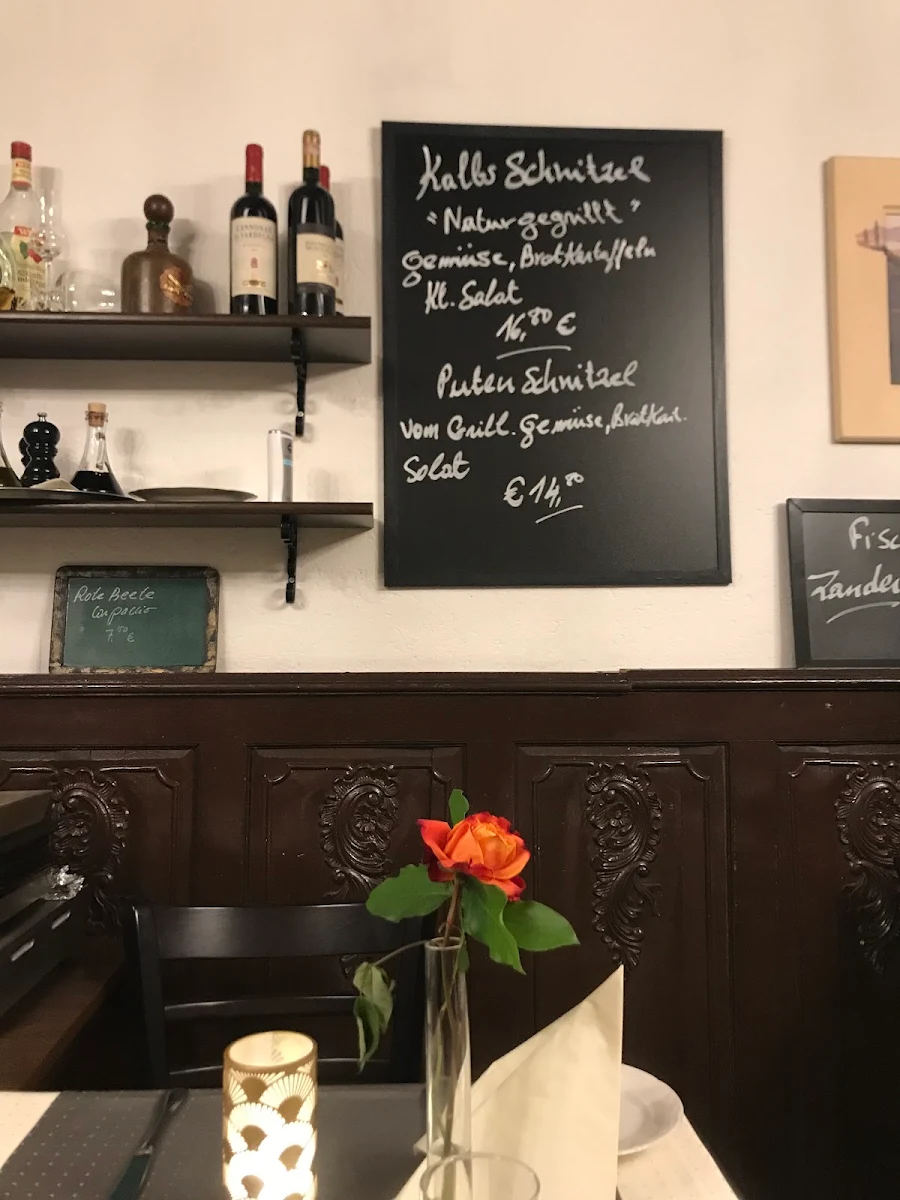 Kalbs Schnitzel
"Natur gegrillt"
gemüse, Bratkartoffeln
Kl. Salat
16,80 €
Puten Schnitzel
vom Grill. gemüse, Bratkart.
Salat
€ 14,80
Rote Beete
Carpaccio
7,50 €
Fisc
Zande
CANNONAU
DI SARDEGNA